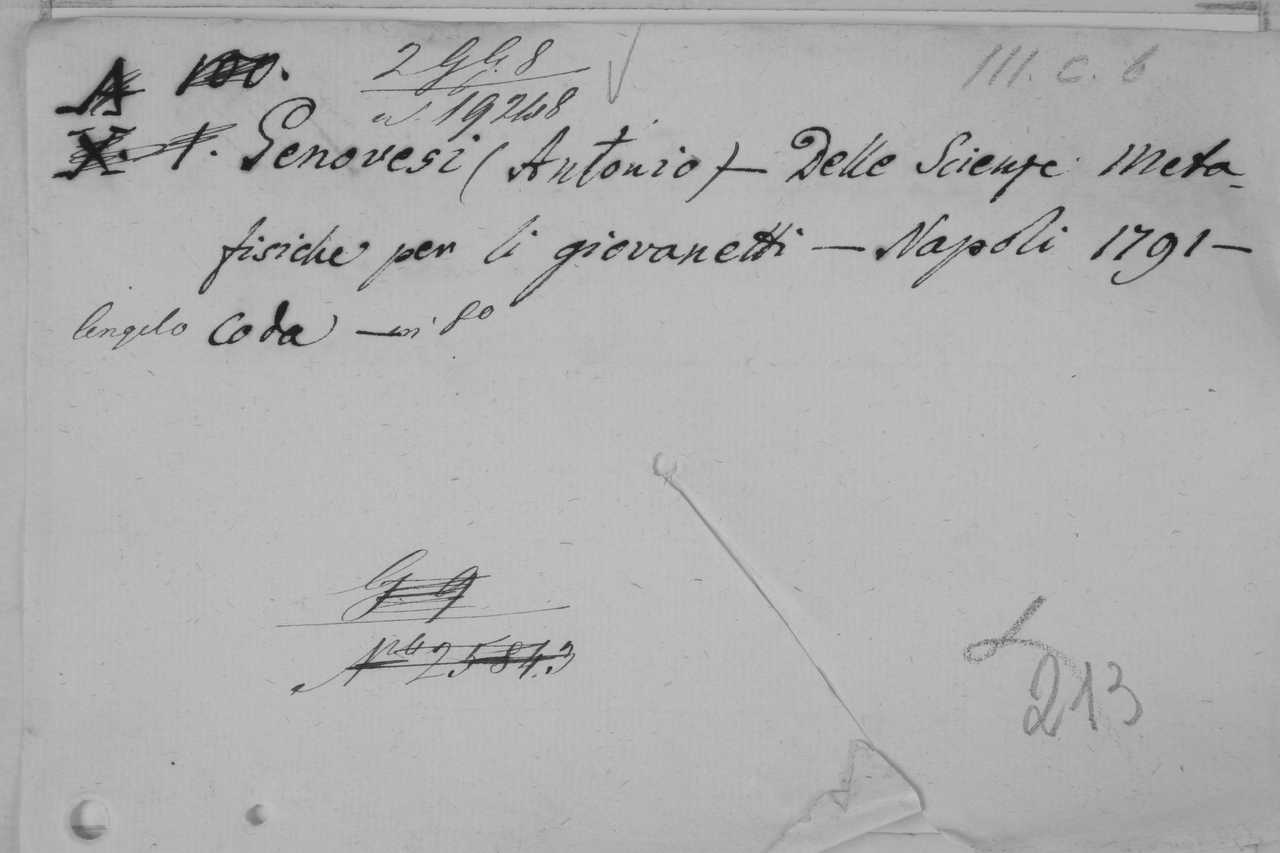 A 100. 2 G G. 8 III. C. 6
n. 19248
X. 1. Genovesi (Antonio) — Delle Scienze Meta-
fisiche per li giovanetti — Napoli 1791 —
Coda — in 8o
G. 9
N.o 25843
L
213